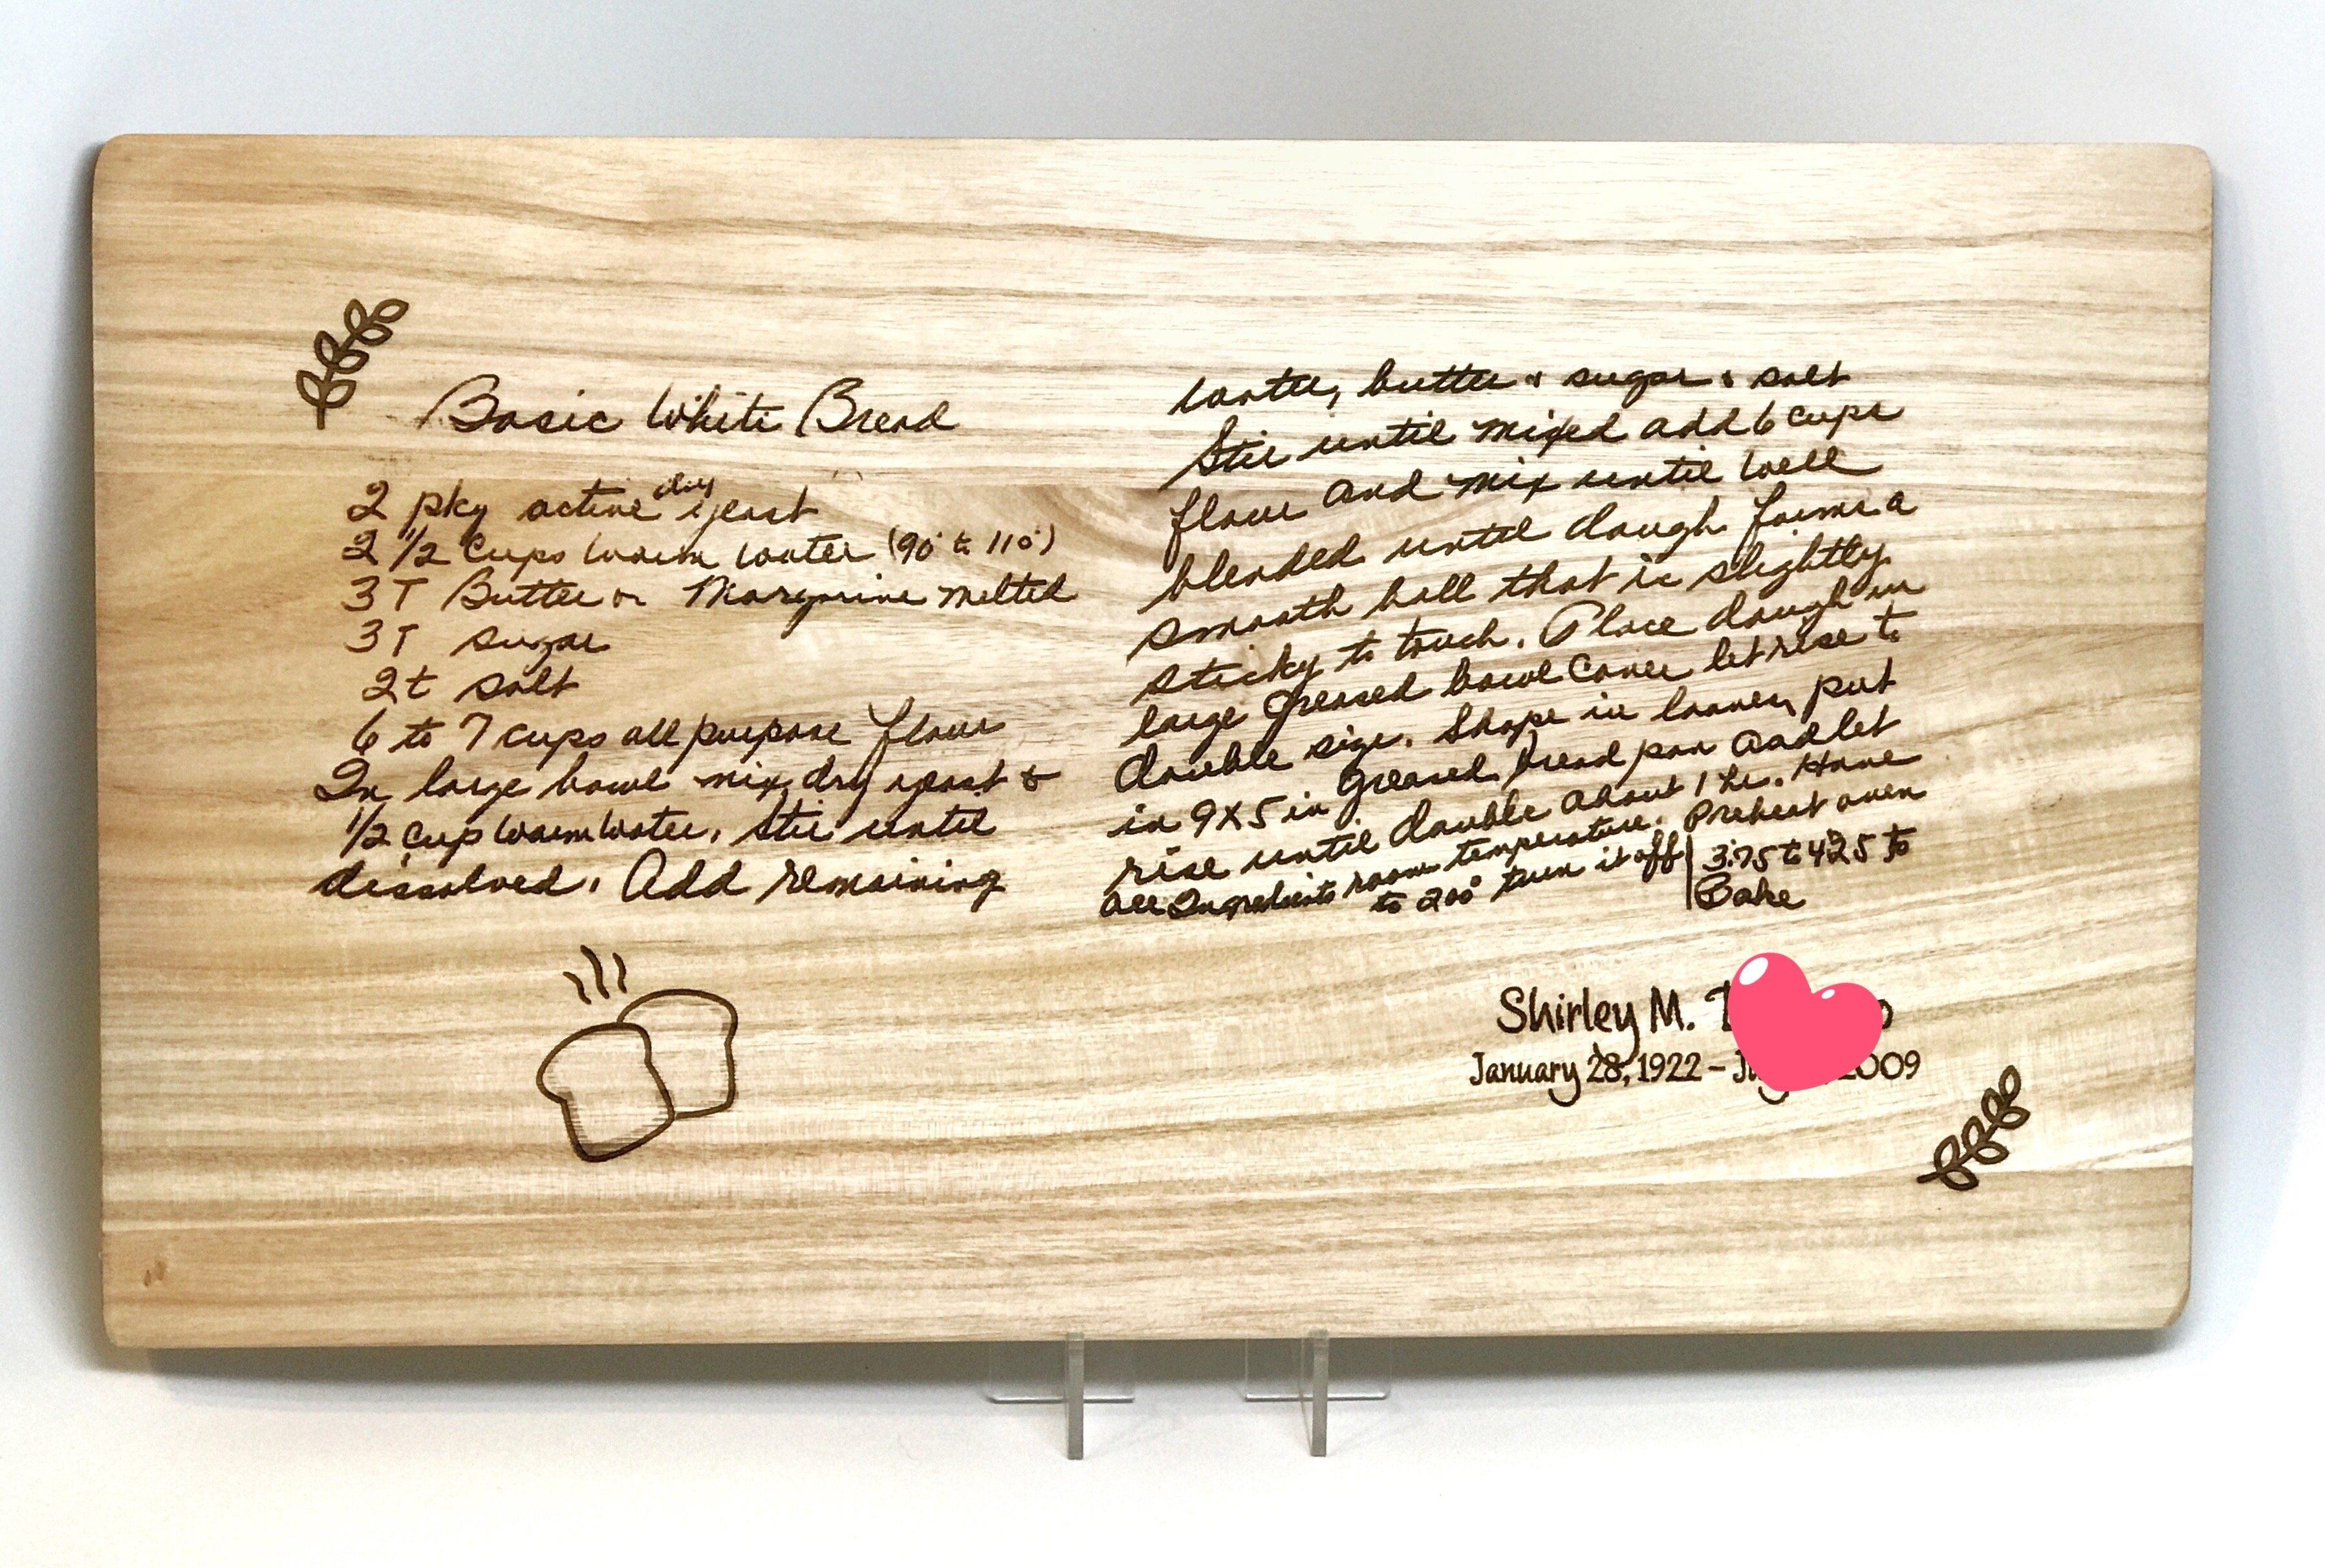 Basic White Bread
2 pkg active dry yeast
2 1/2 Cups warm water (90° to 110°)
3T Butter or Margarine melted
3T sugar
2t salt
6 to 7 cups all purpose flour
In large bowl mix dry yeast &
1/2 cup warm water, stir until
dissolved. Add remaining
water, butter & sugar & salt
Stir until mixed add 6 cups
flour and mix until well
blended until dough forms a
smooth ball that is slightly
sticky to touch. Place dough in
large greased bowl Cover let rise to
double size. Shape in loaves, put
in 9X5 in greased bread pan and let
rise until double about 1 hr. Have
all Ingredients room temperature. Preheat oven
to 200° turn it off
375 to 425 to
Bake
Shirley M.
January 28, 1922 - 2009